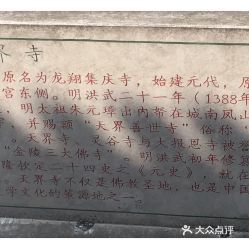 界寺
原名为龙翔集庆寺，始建元代，原
宫东侧。明洪武二十一年（1388年
，明太祖朱元璋出内帑在城南凤山
，并赐额“天界善世寺”俗称
天界寺、灵谷寺与大报恩寺被
“金陵三大佛寺”。明洪武初年修
隆钦定二十四史之《元史》，就在
。天界寺不仅是佛教圣地，也是中国
学文化的策源地之一
大众点评